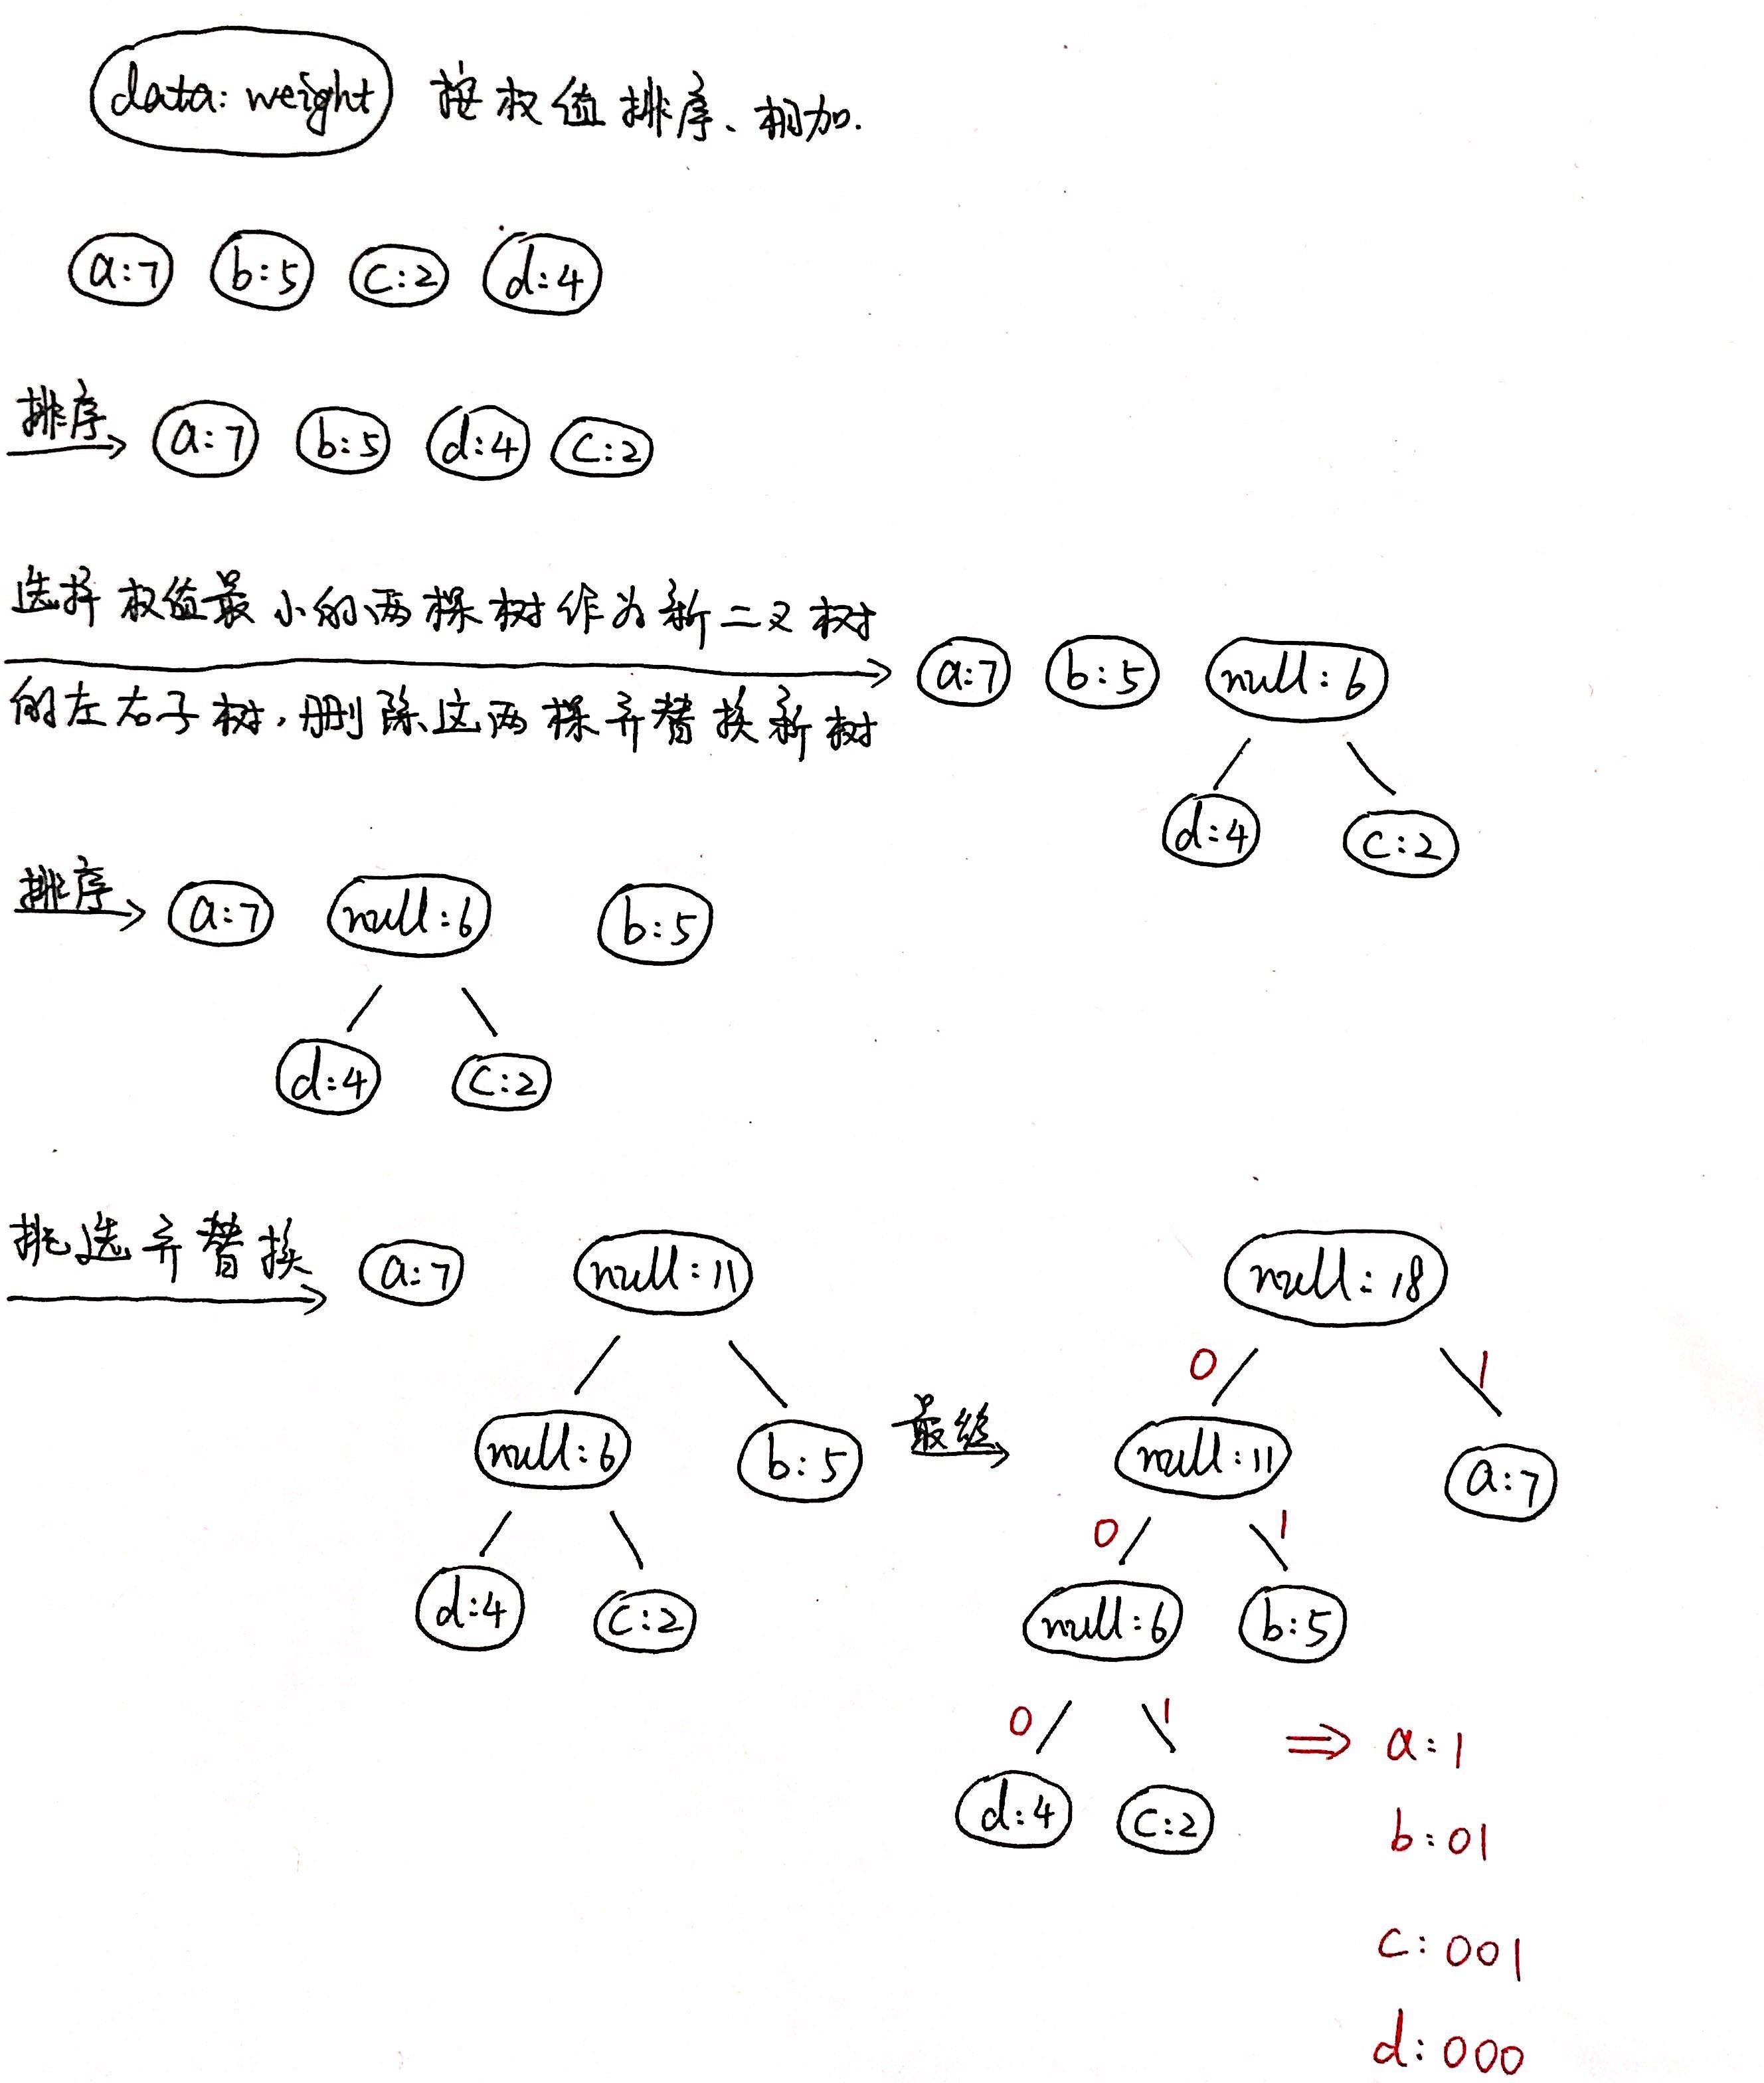 data: weight 按权值排序、相加.
a:7 b:5 c:2 d:4
排序 a:7 b:5 d:4 c:2
选择权值最小的两棵树作为新二叉树
的左右子树,删除这两棵并替换新树
a:7 b:5 null:6
d:4 c:2
排序 a:7 null:6 b:5
d:4 c:2
挑选并替换 a:7 null:11
null:6 b:5
d:4 c:2
最终
null:18
0 1
null:11 a:7
0 1
null:6 b:5
0 1
d:4 c:2
⇒ a:1
b:01
c:001
d:000